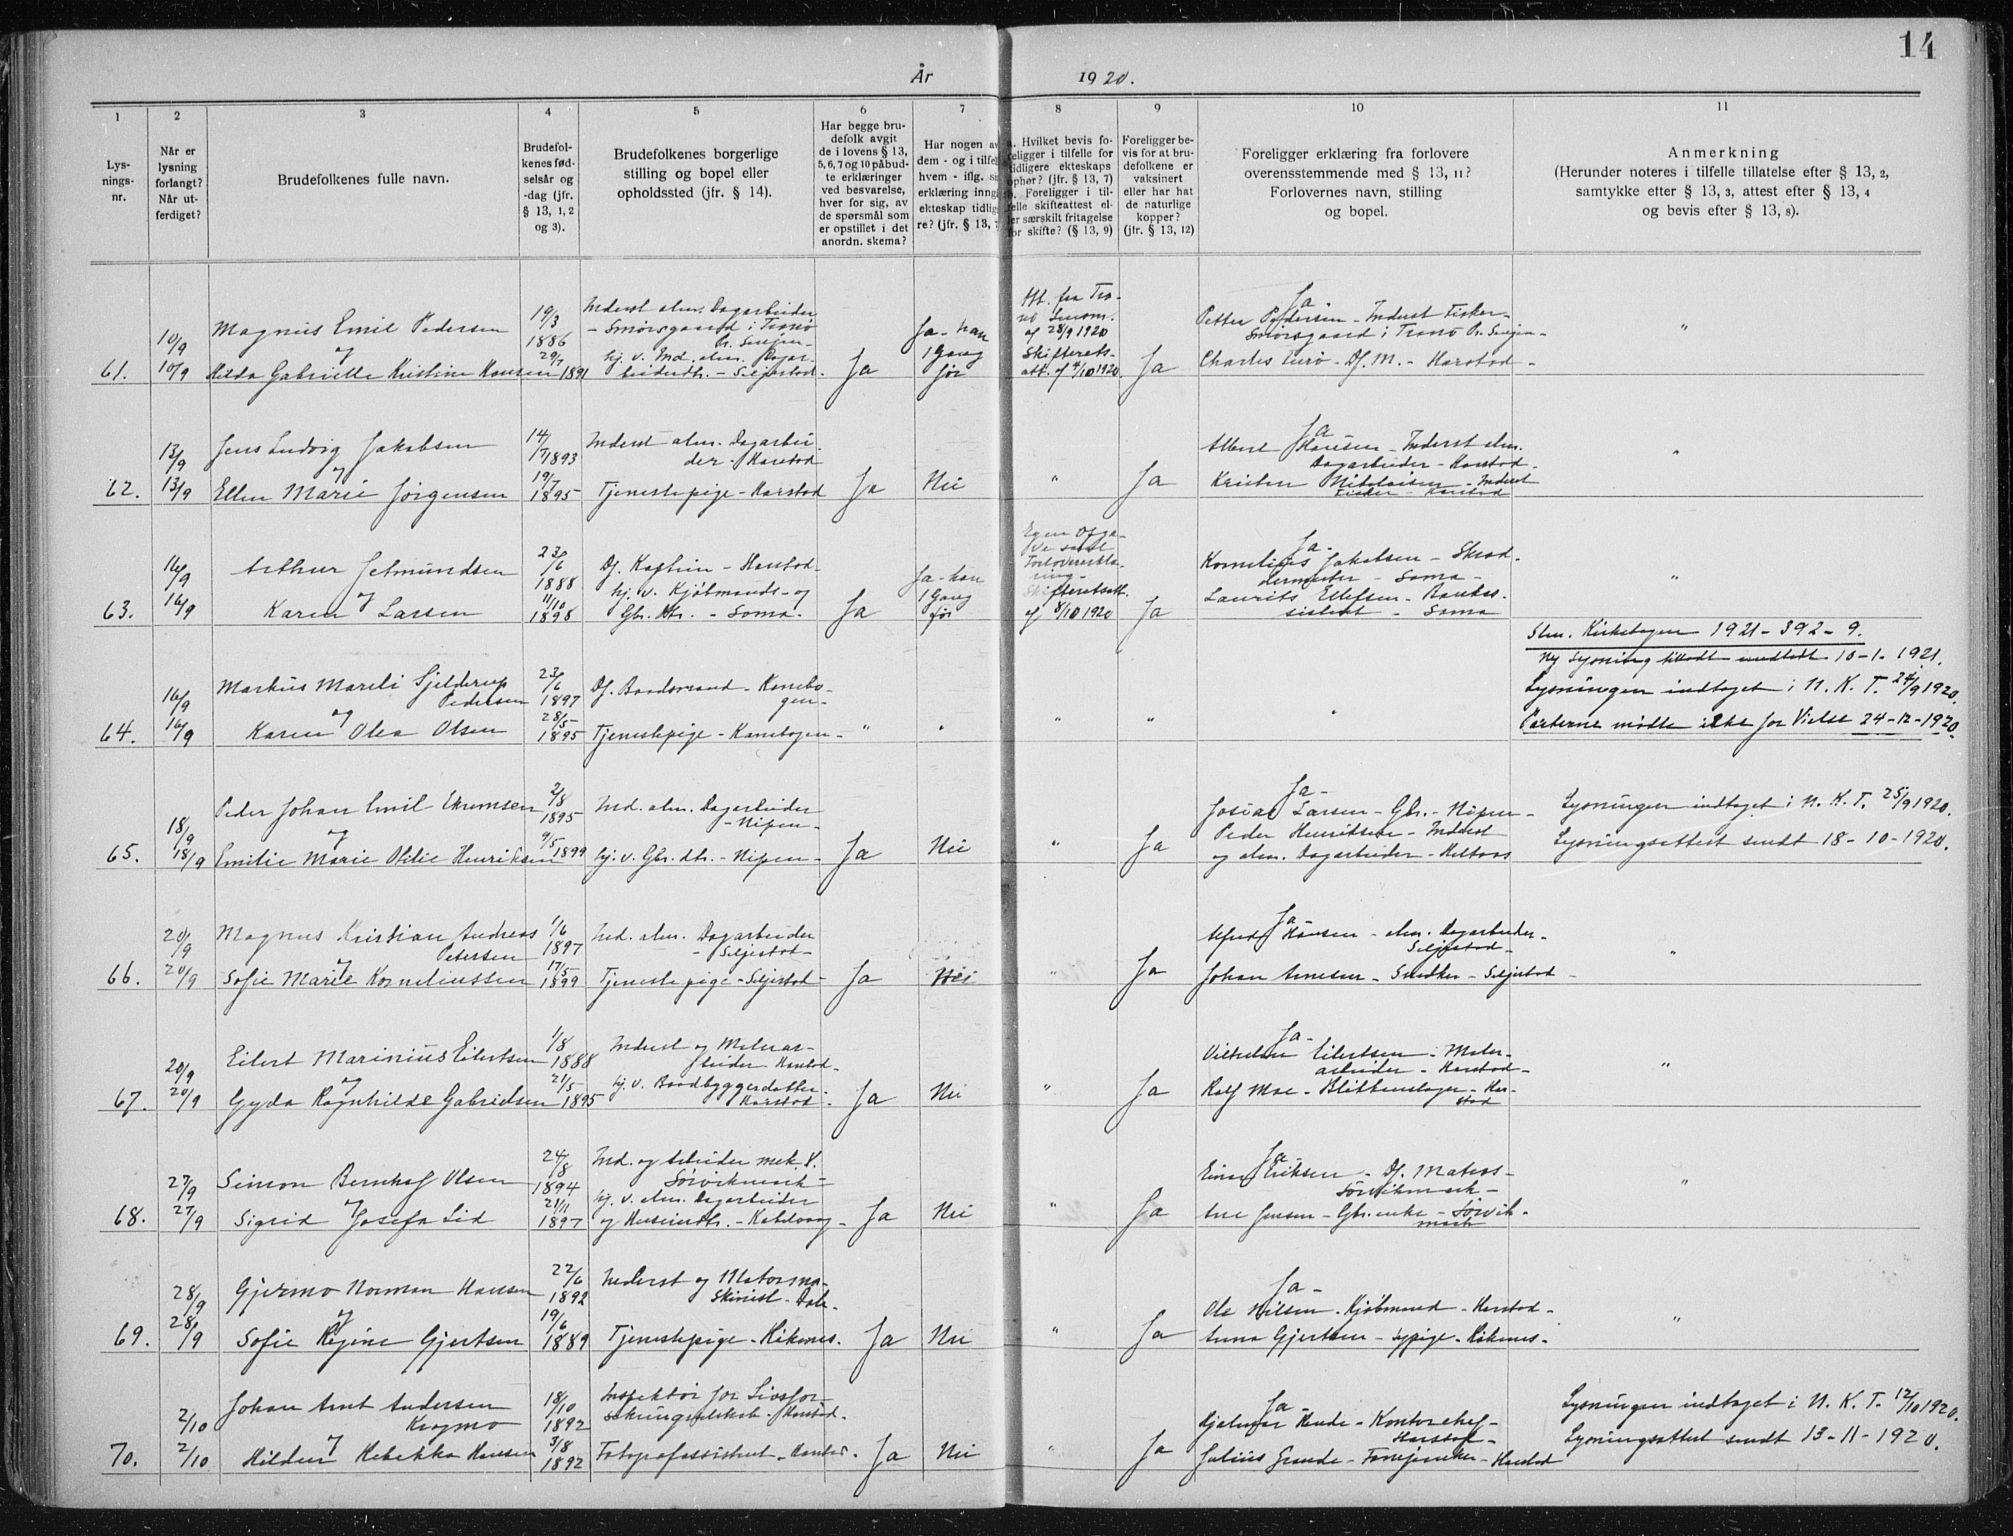 14
År 1920.
1 2 3 4 5 6 7 8 9 10 11
Lys-
nings-
nr.
Når er
lysning
forlangt?
Når ut-
ferdiget?
Brudefolkenes fulle navn.
Brudefol-
kenes fød-
selsår og
-dag (jfr.
§ 13, 1, 2
og 3).
Brudefolkenes borgerlige
stilling og bopel eller
opholdssted (jfr. § 14).
Har begge bru-
defolk avgit
de i lovens § 13,
5, 6, 7 og 10 påbud-
te erklæringer
ved besvarelse,
hver for sig, av
de spørsmål som
er opstillet i det
anordn. skema?
Har nogen av
dem - og i tilfel
hvem - iflg. s
erklæring inng
ekteskap tidlig
re? (jfr. § 13, 7
a. Hvilket bevis fo-
religger i tilfelle for
tidligere ekteskaps
ophør? (jfr. § 13, 7)
b. Foreligger i til-
felle skifteattest el-
ler særskilt fritagelse
for skifte? (§ 13, 9)
Foreligger be-
vis for at bru-
defolkene er
vaksinert
eller har hat
de naturlige
kopper?
(jfr. § 13, 12)
Foreligger erklæring fra forlovere
overensstemmende med § 13, 11?
Forlovernes navn, stilling
og bopel.
Anmerkning
(Herunder noteres i tilfelle tillatelse efter § 13, 2,
samtykke efter § 13, 3, attest efter § 13, 4
og bevis efter § 13, 8).
61. 10/9 10/9
Magnus Emil Pedersen
og
Hilda Gabrielle Kristine Hansen
19/3 1886
29/7 1891
Inderst alm. Dagarbeider
- Smørsgaard i Tranø
Pr. Senjen -
hj. v. Ind. alm. Dagar-
beiderdtr. - Seljestad.
Ja
Ja - han
1 Gang
før
Att. fra Tra-
nø
af 28/9 1920
Skifterets-
att. af /10 1920.
Ja
Ja
Petter Pedersen - Inderst Fisker -
Smørsgaard i Tranø Pr. Senjen -
Charles - Df. M. - Harstad -
"
62. 13/9 13/9
Jens Ludvig Jakobsen
og
Ellen Marie Jørgensen
14/7 1893
19/7 1895
Inderst alm. Dagarbei-
der - Harstad
Tjenestepige - Harstad
Ja
Nei
"
Ja
Ja
Albert Hansen - Inderst alm.
Dagarbeider - Harstad -
Kristen Nikolaisen - Inderst
Fisker - Harstad
"
63. 16/9 16/9
Arthur Jetmundsen
og
Karen Larsen
23/6 1888
11/10 1898
Df. Kaptein - Harstad -
hj. v. Kjøbmands- og
Gbr. dtr. - Sama.
Ja
Ja - han
1 Gang
før
Egen Opga-
ve samt
Forlovererklæ-
ring -
Skifteretsatt.
af 8/10 1920
Ja
Ja -
Kornelius Jakobsen - Skræd-
dermester - Sama -
Laurits Ellefsen - Bankas-
sistent - Sama
"
64. 16/9 16/9
Markus Mareli Sjelderup
Pedersen
og
Karen Olea Olsen
23/6 1897
28/5 1895
Df. Baadsmand - Kanebo-
gen -
Tjenestepige - Kanebogen -
"
"
"
"
"
Slm. Kirkebogen 1921 - 392 - 9.
Ny Lysning 10 - 1 - 1921.
Lysningen indtaget i N. K. T. 24/9 1920.
Parterne mødte ikke for Vielse 24 - 12 - 1920.
65. 18/9 18/9
Peder Johan Emil Ekremsen
og
Emilie Marie Otilie Henriksen
2/8 1895
9/5 1899
Ind. alm. Dagarbeider
- Nipen -
hj. v. Gbr. dtr. - Nipen -
Ja
Nei
"
Ja
Ja -
Josias Larsen - Gbr. - Nipen -
Peder Henriksen - Inderst
og alm. Dagarbeider - Meltaas
Lysningen indtaget i N. K. T. 25/9 1920.
Lysningsattest sendt 18 - 10 - 1920.
66. 20/9 20/9
Magnus Kristian Andreas
Petersen
og
Sofie Marie Korneliussen
1/6 1897
17/5 1899
Ind. alm. Dagarbeider
- Seljestad -
Tjenestepige - Seljestad -
Ja
Nei
"
Ja
Ja
Alfred Hansen - alm. Dagarbeider -
Seljestad -
Johan Arnesen - Snedker - Seljestad -
"
67. 20/9 20/9
Eilert Marinius Eilertsen
og
Gyda Ragnhilde Gabrielsen
1/8 1888
21/5 1895
Inderst og Malerar-
beider Harstad -
hj. v. Baadbyggerdatter -
Harstad -
Ja
Nei
"
Ja
Ja -
Vilhelm Eilertsen - Maler-
arbeider - Harstad -
Ralf Moe - Blikkenslager - Har-
stad
"
68. 27/9 27/9
Simon Bernhof Olsen
og
Sigrid Josefa Lid
24/8 1894
21/11 1897
Ind. og Arbeider mek. V.
Sørvikmark -
hj. v. alm. Dagarbeider
og Husmandtr. - Kabelvaag -
Ja
Nei
"
Ja
Ja
Einar Eriksen - Df. Matros -
Sørvikmark -
Ane Jensen - Gbr. enke - Sørvik-
mark
"
69. 28/9 28/9
Gjermo Norman Hansen
og
Sofie Regine Gjertsen
22/6 1892
19/6 1889
Inderst og Motorma-
skinist - Dale -
Tjenestepige - Kilsnes.
Ja
Nei
"
Ja
Ja -
Ole Nilsen - Kjøbmand - Harstad -
Anna Gjertsen - Sypige -
"
70. 2/10 2/10
Johan Arnt Andersen
Krogmo
og
Hildur Rebekka Hansen
18/10 1892
3/8 1892
Inspektør for Livsfor-
sikringselskab - Harstad -
Fotografassistent - Harstad.
Ja
Nei
"
Ja
Ja -
Hjalmar - Kontorchef -
Harstad -
Julius Grande - - Harstad
Lysningen indtaget i N. K. T. 12/10 1920.
Lysningsattest sendt 13 - 11 - 1920.